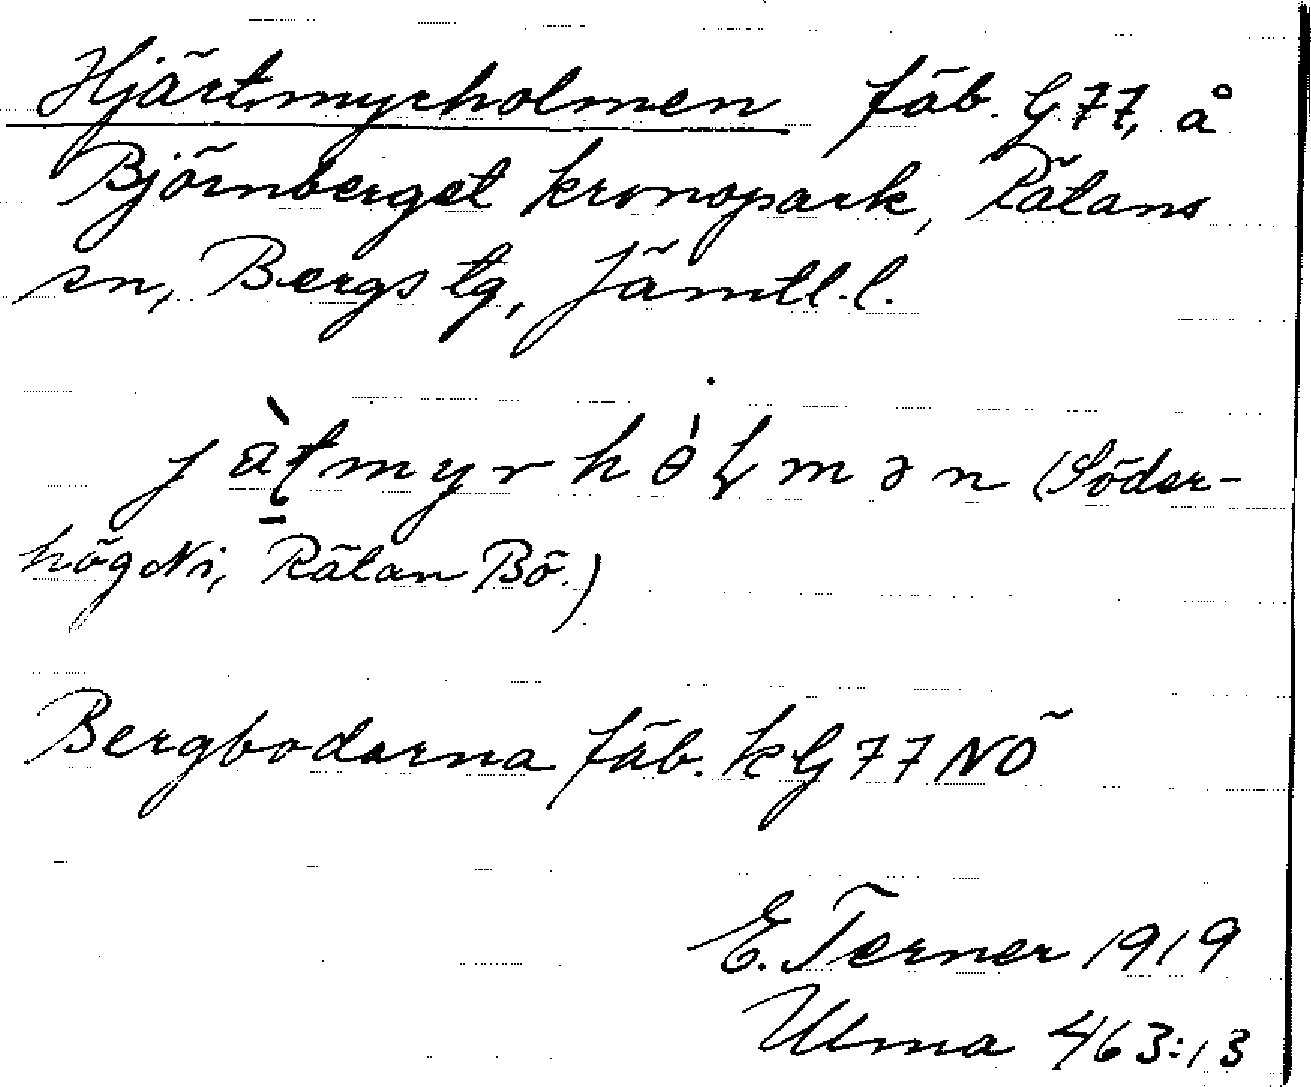 Hjärtmyrholmen fäb. G77, å
Björnberget kronopark, Rätans
sn, Bergs tg, Jämtl. l.
jàt̠myrhólmən (Söder-
högdNi, Rätan Bö.)
Bergbodarna fäb. k G77 NÖ
E. Terner 1919
Ulma 463:13